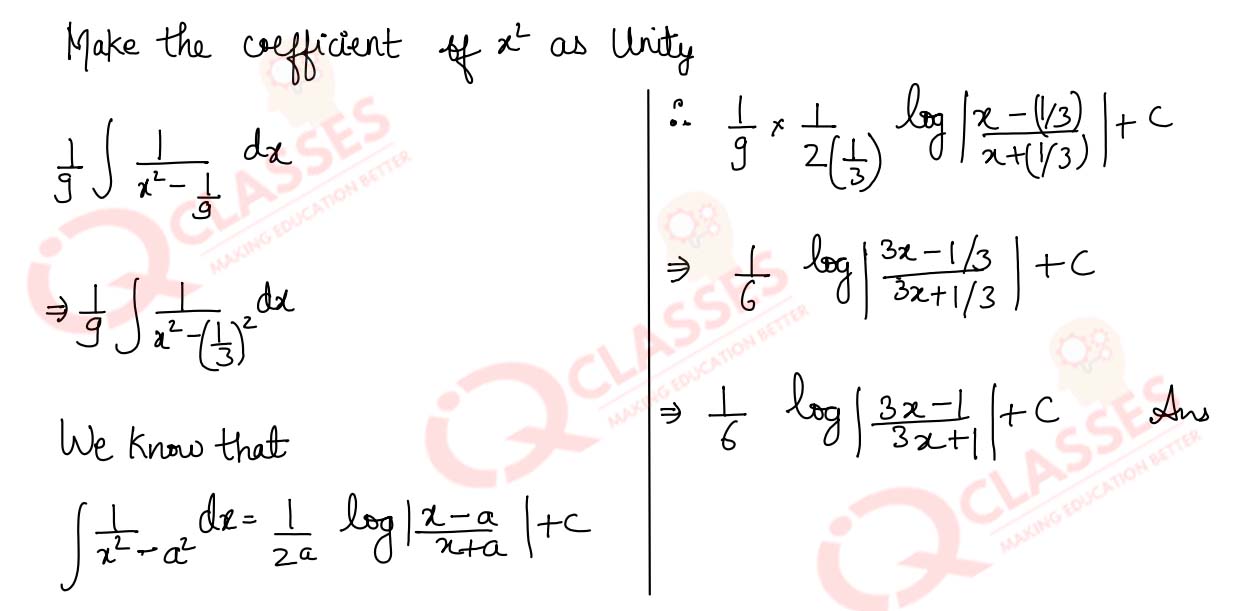 Make the coefficient of x² as Unity
1/9 ∫ 1/(x² - 1/9) dx
⇒ 1/9 ∫ 1/(x² - (1/3)²) dx
We Know that
∫ 1/(x² - a²) dx = 1/2a log |(x - a)/(x + a)| + C
∴ 1/9 × 1/2(1/3) log |(x - (1/3))/(x + (1/3))| + C
⇒ 1/6 log |(3x - 1/3)/(3x + 1/3)| + C
⇒ 1/6 log |(3x - 1)/(3x + 1)| + C Ans
iQ CLASSES
MAKING EDUCATION BETTER
iQ CLASSES
MAKING EDUCATION BETTER
iQ CLASSES
MAKING EDUCATION BETTER